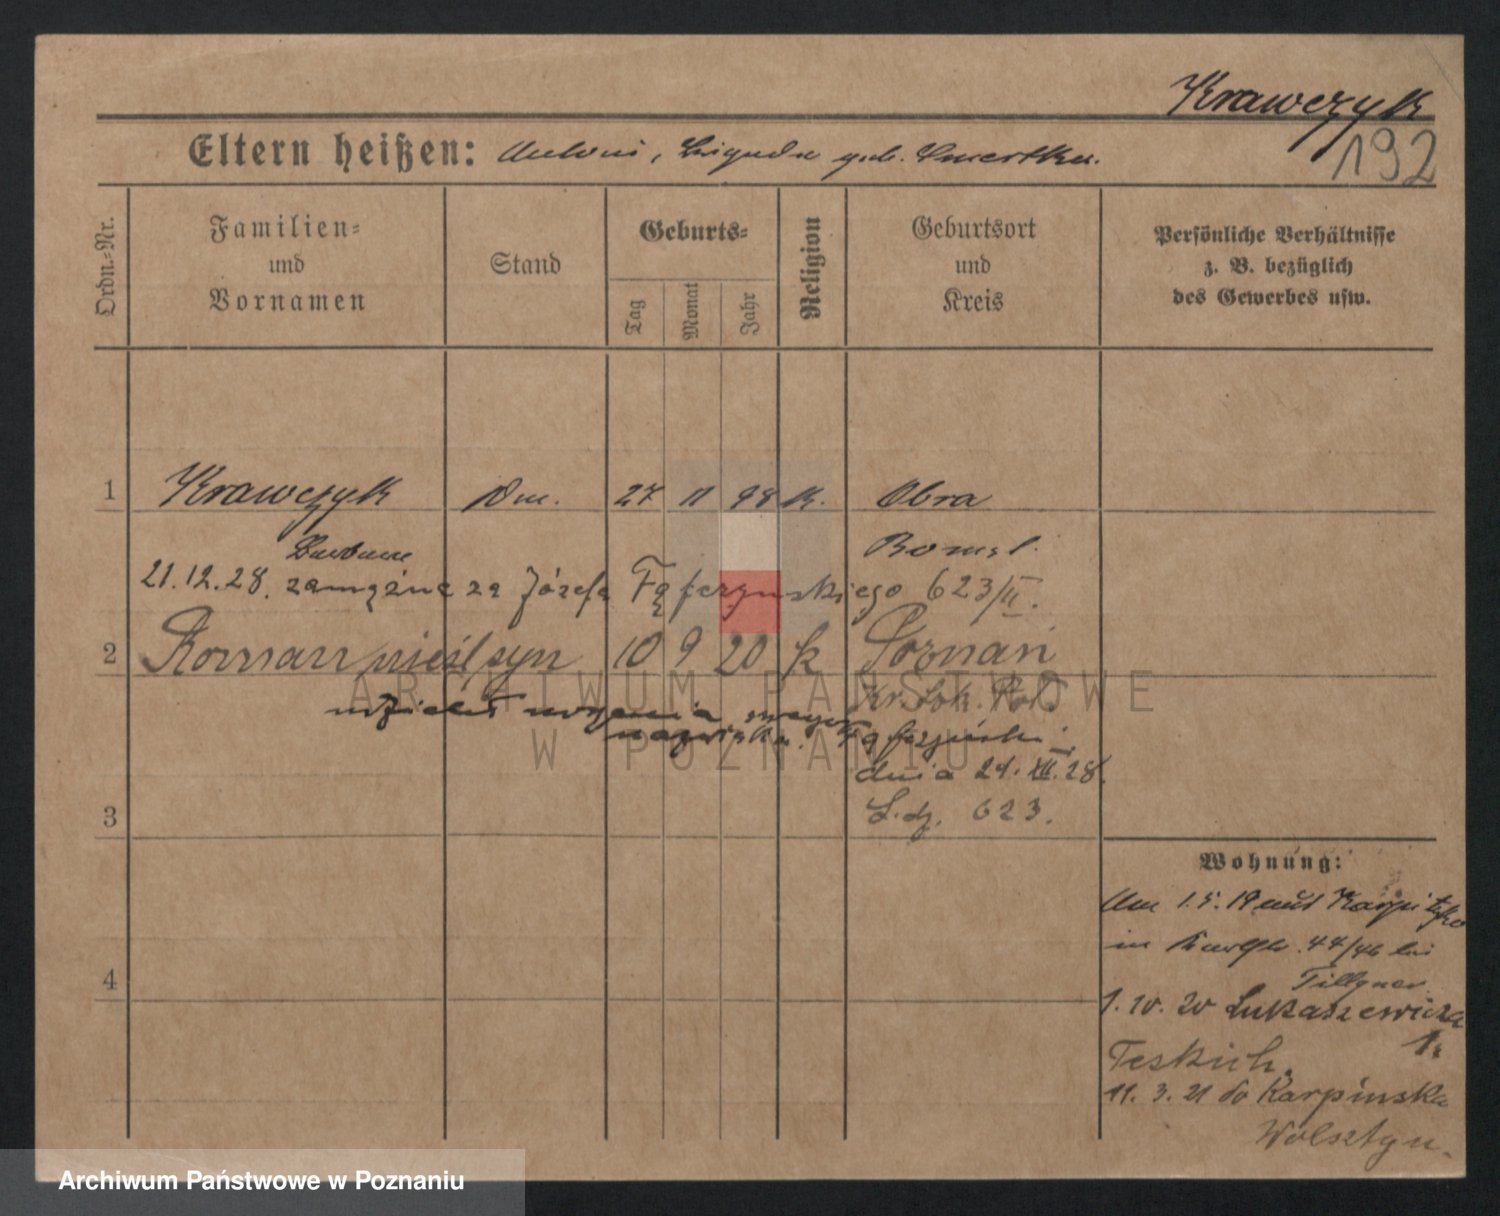 Krawczyk
192
Eltern heißen: Antoni, geb.
Ordn.=Nr.
Familien=
und
Vornamen
Stand
Geburts=
Tag
Monat
Jahr
Religion
Geburtsort
und
Kreis
Persönliche Verhältnisse
z. B. bezüglich
des Gewerbes usw.
1 Krawczyk 27 11 98 K. Obra
Bomst.
21.12.28. zamężna za Józefa 623/II.
2 Roman nieśl syn 10 9 20 k Poznań
nazwiska
dnia 21. XII. 28.
L.dz. 623.
3
Wohnung:
Am 1.5.19 aus
in 44/46 bei
Tillgner
4
1. 10. 20 Łukaszewicza
Teskich.
11. 3. 21 do Karpińska
Wolsztyn.
ARCHIWUM PAŃSTWOWE
W POZNANIU
Archiwum Państwowe w Poznaniu